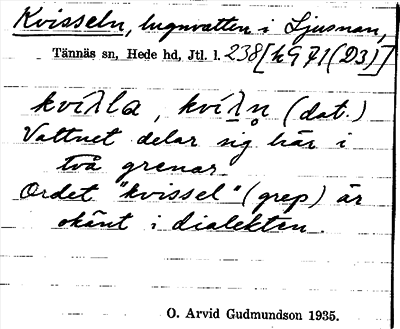 Kvisseln, lugnvatten i Ljusnan,
Tännäs sn, Hede hd, Jtl. l. 238 [h 971 (D3)]
kvíλla, kvíλ̲n̥ (dat.)
Vattnet delar sig här i
två grenar.
Ordet "kvissel" (grep) är
okänt i dialekten.
O. Arvid Gudmundson 1935.